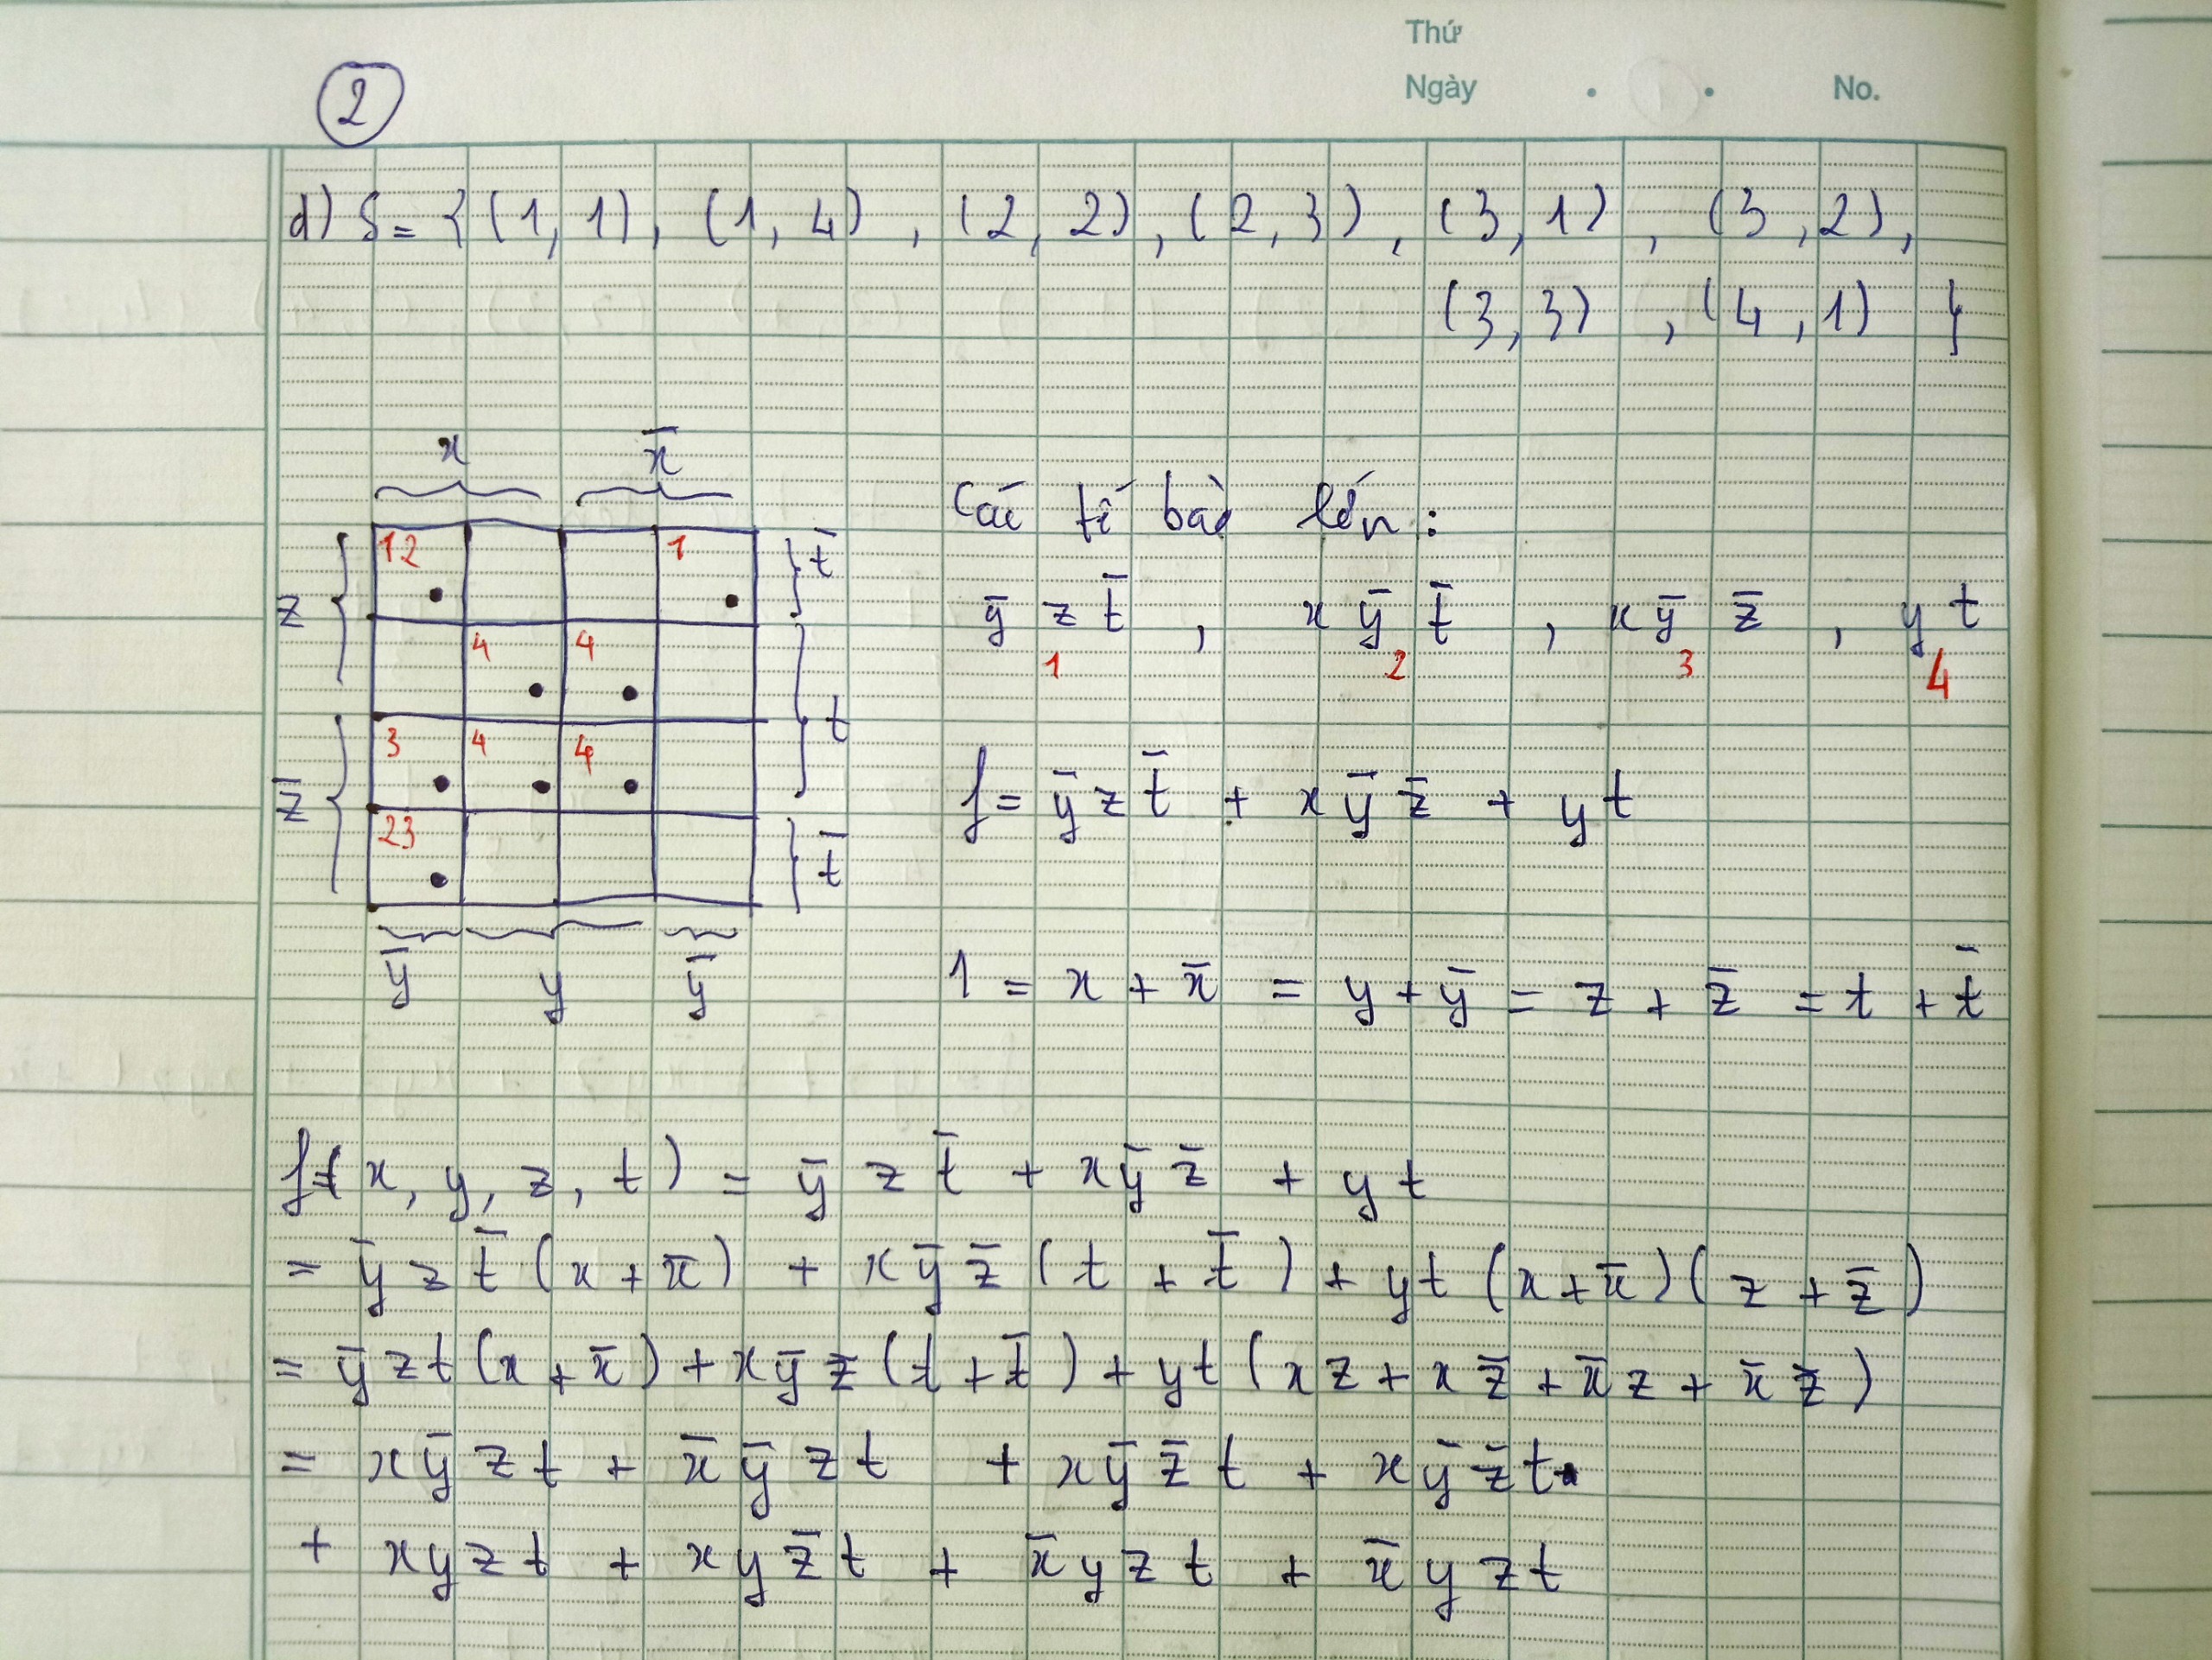 Thứ
Ngày . . No.
2
d) S = {(1,1), (1,4), (2,2), (2,3), (3,1), (3,2),
(3,3), (4,1)}
x x̄
z z̄
12 1
4 4
3 4 4
23
t̄ t t̄
ȳ y ȳ
Các tế bào lớn:
ȳ z t̄ , x ȳ t̄ , x ȳ z̄ , y t
1 2 3 4
f = ȳ z t̄ + x ȳ z̄ + y t
1 = x + x̄ = y + ȳ = z + z̄ = t + t̄
f(x, y, z, t) = ȳ z t̄ + x ȳ z̄ + y t
= ȳ z t̄ (x + x̄) + x ȳ z̄ (t + t̄) + y t (x + x̄)(z + z̄)
= ȳ z t (x + x̄) + x ȳ z (t + t̄) + y t (x z + x z̄ + x̄ z + x̄ z̄)
= x ȳ z t + x̄ ȳ z t + x ȳ z̄ t + x ȳ z̄ t
+ x y z t + x y z̄ t + x̄ y z t + x̄ y z t